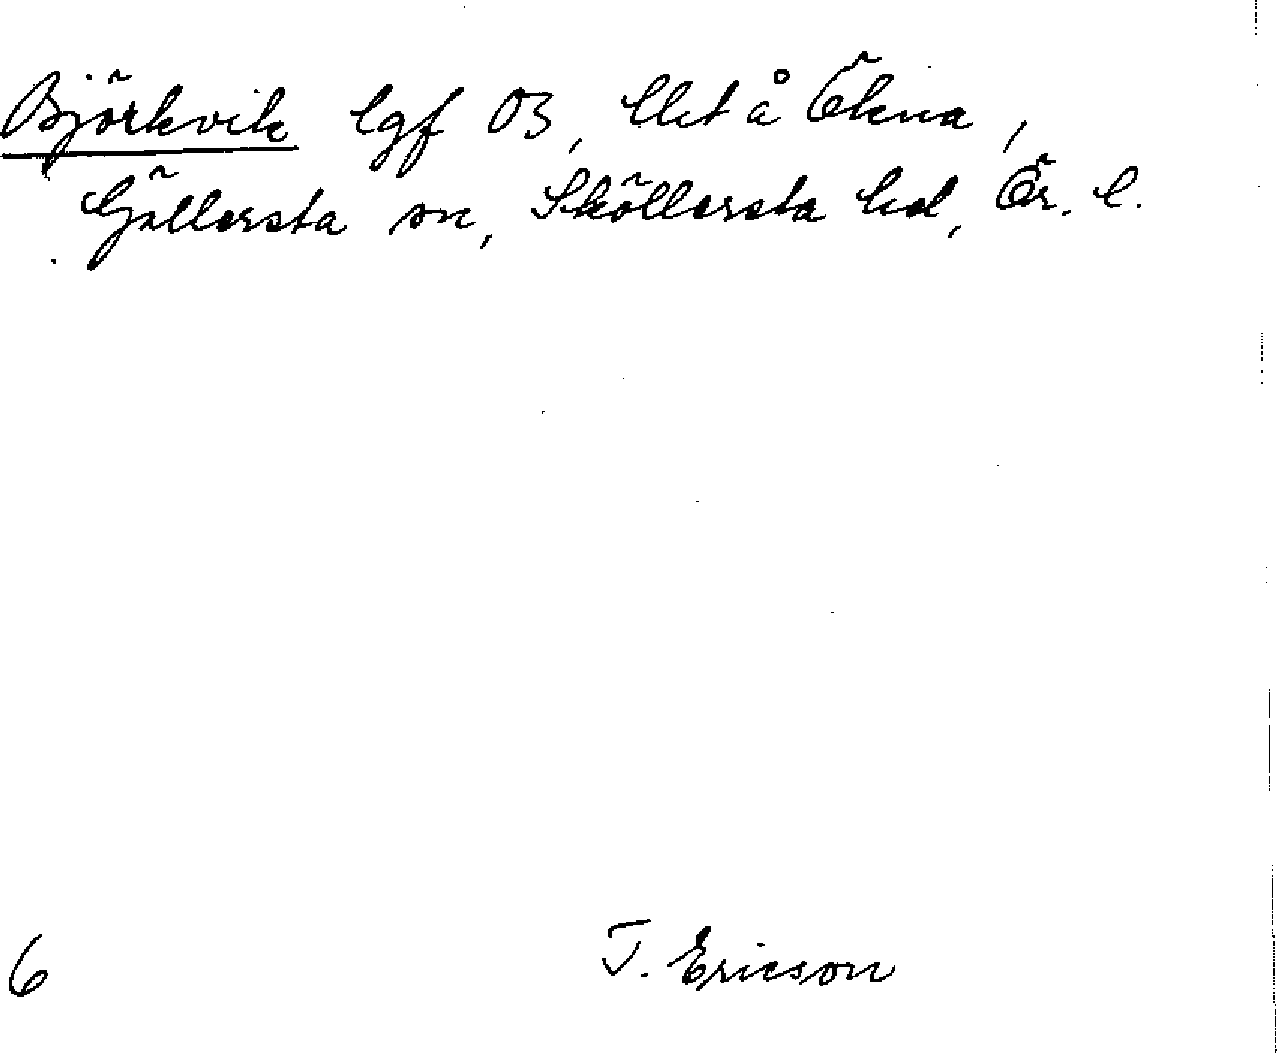 Björkvik lgf 03, llet å Ökna,
Gällersta sn, Sköllersta hd, Ör. l.
6
T. Ericson